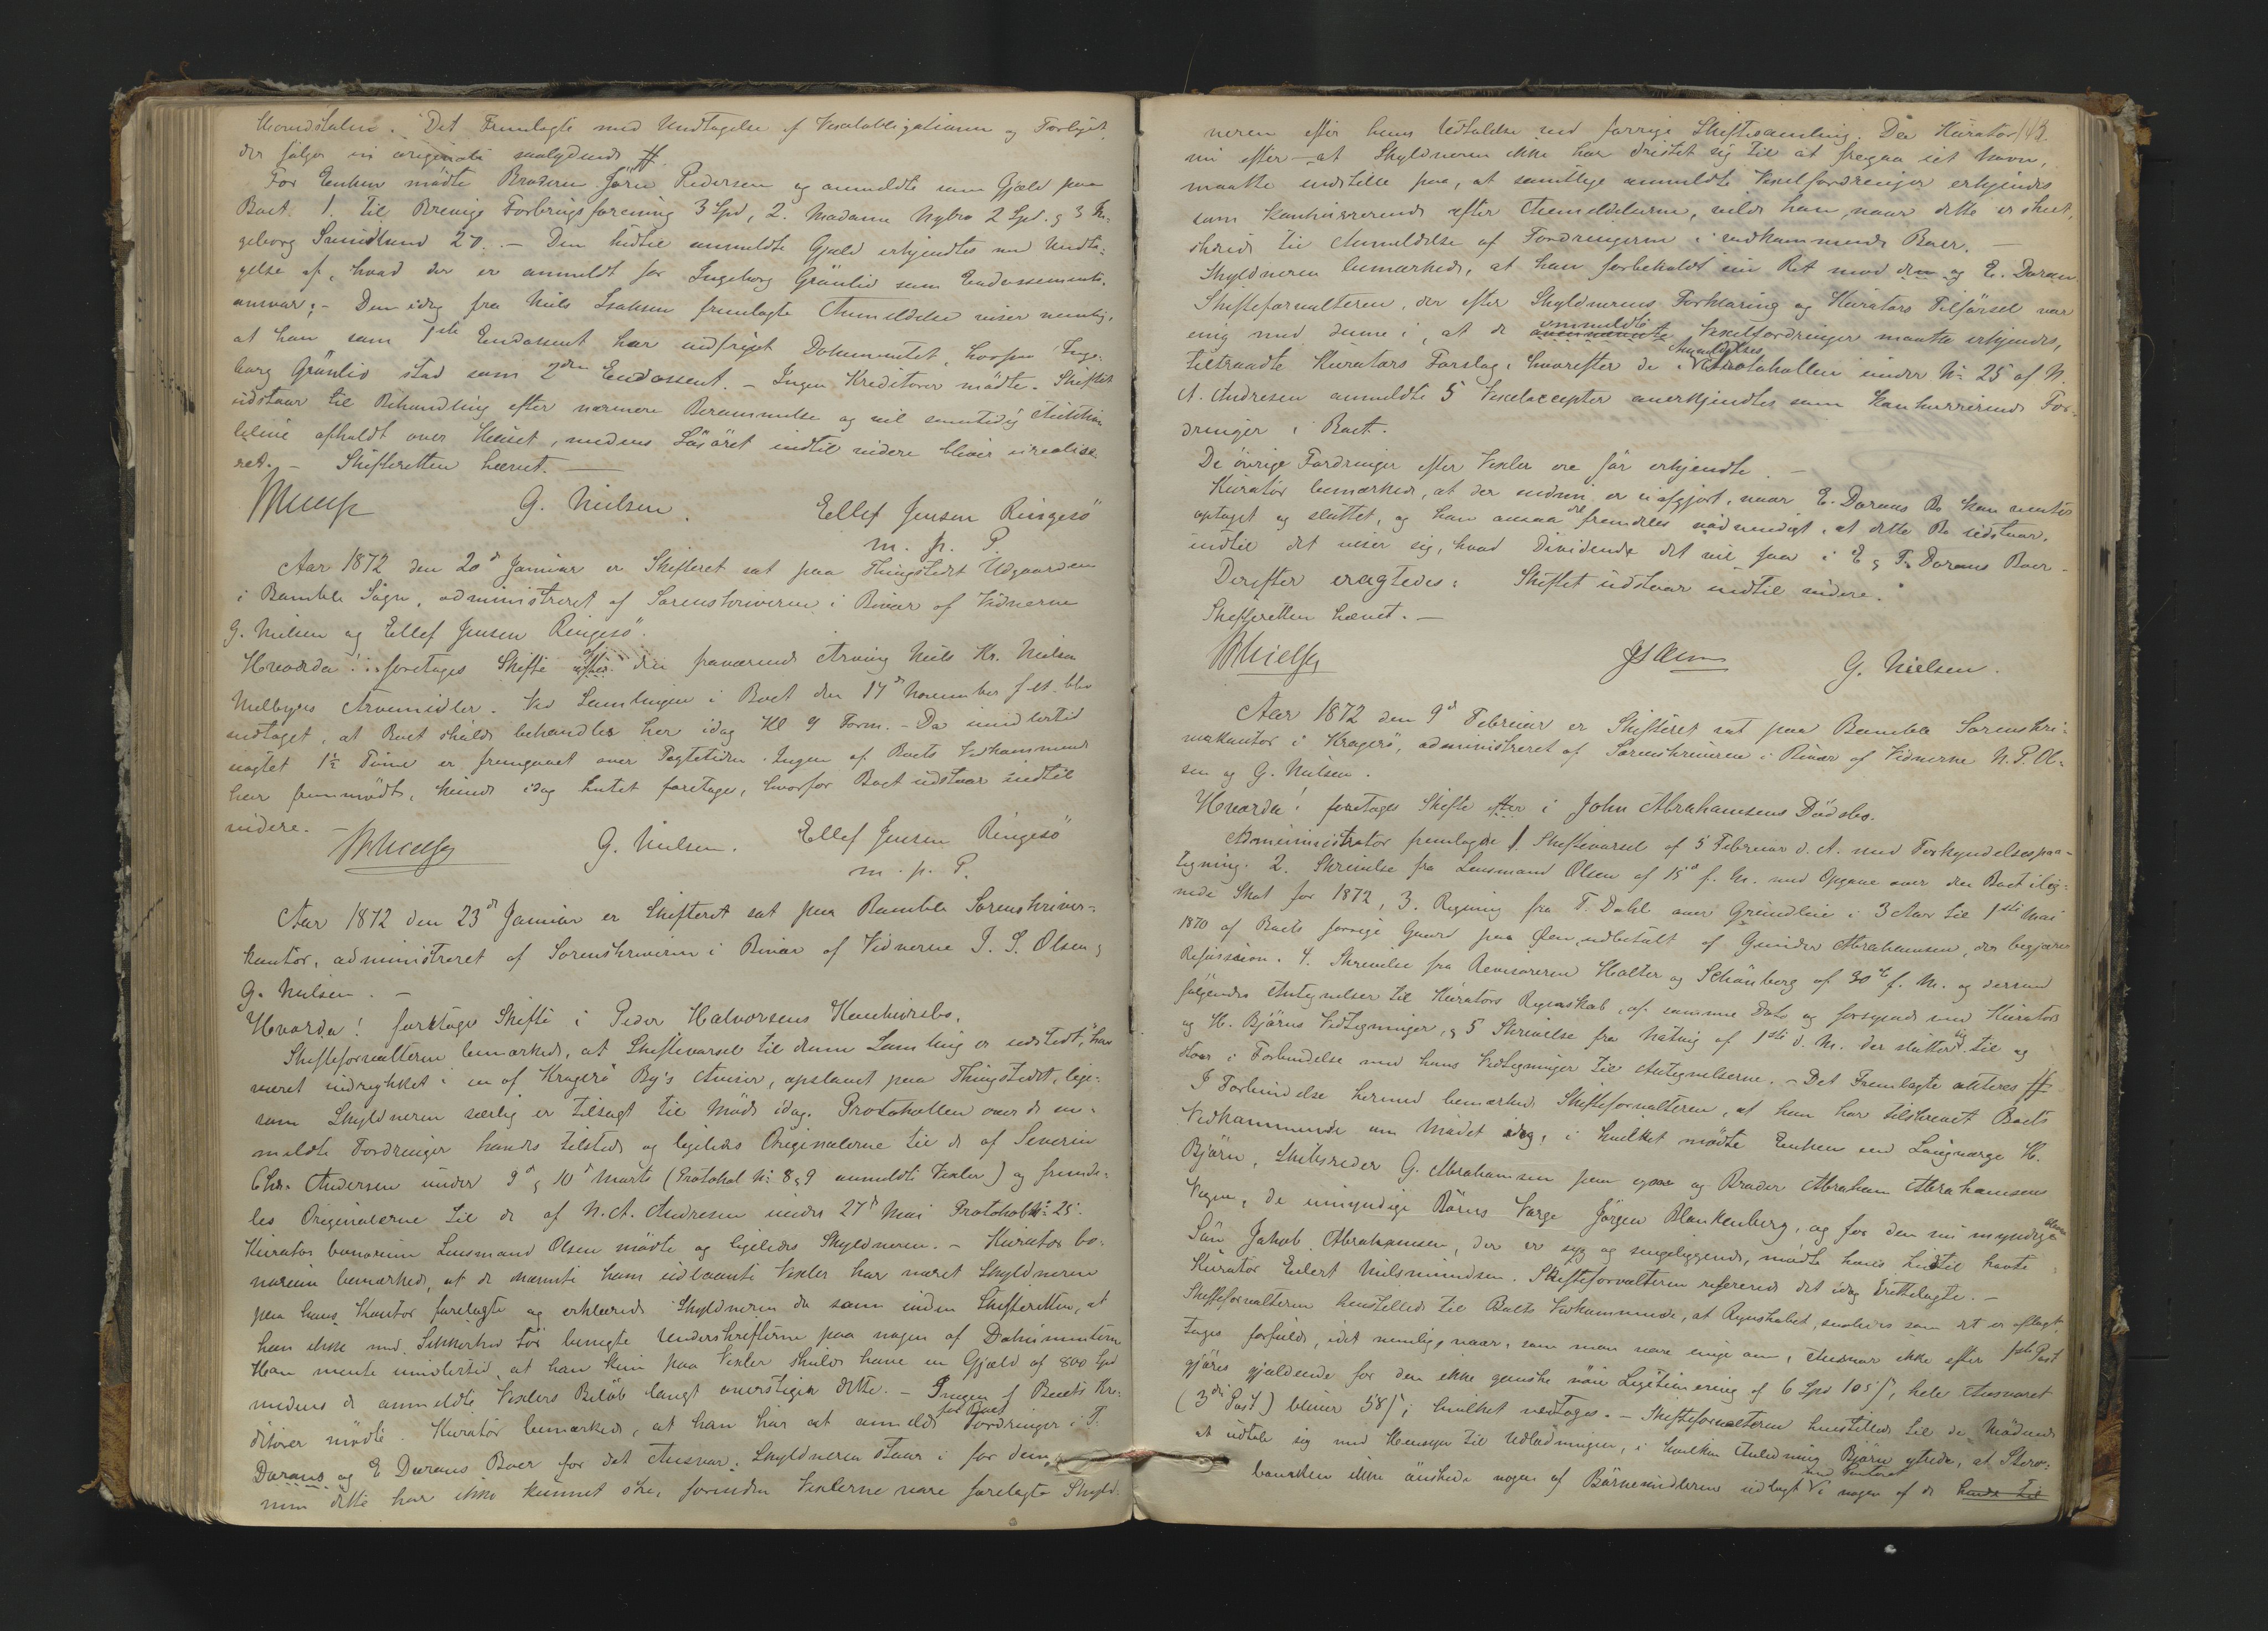 Det Fremlagte med Undtagelse af Vexelobligationen og Forliget
der følger in originali saalydende #
For Enken mødte Broderen Jørn Pedersen og anmeldte som Gjæld paa
Boet 1. til Brevigs Forbrugsforening 3 Spd, 2. Madame Nybro 2 Spd. og 3 In-
geborg Sundlund 20. – Den hidtil anmeldte Gjæld erkjendtes med Undta-
gelse af, hvad der er anmeldt for Ingeborg Grønlid som Endossements-
ansvar; – Den idag fra Niels Isaksen fremlagte Anmeldelse viser nemlig,
at han som 1ste Endossent har indfriet Dokumentet, hvorpaa Inge-
borg Grønlid stod som 2den Endossent. – Ingen Kreditorer mødte. Skiftet
udstaar til Behandling efter nærmere Berammelse og vil samtidig Auktion
blive afholdt over Huset, medens Løsøret indtil videre bliver urealise-
ret. – Skifteretten hævet. –
G. Nielsen. Ellef Jensen Ringesö
m. p. P.
Aar 1872 den 20de Januar er Skifteret sat paa Thingstedet Udgaarden
i Bamble Sogn, administreret af Sorenskriveren i Bivær af Vidnerne
G. Nielsen og Ellef Jensen Ringesö.
Hvorda! foretoges Skifte af den fraværende Arving Niels Kr. Nielsen
Melbyes Arvemidler. Ved Samlingen i Boet den 17de November f. A. blev
vedtaget, at Boet skulde behandles her idag Kl 9 Form. – Da imidlertid
uagtet 1½ Time er fremgaaet over Tægtetiden Ingen af Boets Vedkommende
har fremmødt, kunde idag Intet foretages, hvorfor Boet udstaar indtil
videre. –
G. Nielsen. Ellef Jensen Ringesö
m. p. P.
Aar 1872 den 23de Januar er Skifteret sat paa Bamble Sorenskriver-
kontor, administreret af Sorenskriveren i Bivær af Vidnerne J. S. Olsen og
G. Nielsen. –
Hvorda! foretoges Skifte i Peder Halvorsens Konkursbo.
Skifteforvalteren bemærkede, at Skiftevarsel til denne Samling er udstedt, har
været indrykket i en af Kragerø By's Aviser, opslaaet paa Thingstedet, lige-
som Skyldneren særlig er tilsagt til Møde idag. Protokollen over de an-
meldte Fordringer havdes tilstede og ligeledes Originalerne til de af Severin
Chr. Andersen under 9de og 10de Marts (Protokol No 8 og 9 anmeldte Vexler) og fremde-
les Originalerne til de af N. A. Andresen under 27de Mai Protokol No 25.
Kurator bonorum Lensmand Olsen mødte og ligeledes Skyldneren. – Kurator bo-
norum bemærkede, at de nævnte ham udlaante Vexler har været Skyldneren
paa hans Kontor forelagte og erklærede Skyldneren da som inden Skifteretten, at
han ikke med Sikkerhed tør benegte Underskrifterne paa nogen af Dokumenterne
Han mente imidlertid, at han kun paa Vexler skulde have en Gjæld af 800 Spd
medens de anmeldte Vexlers Beløb langt overstiger dette. – Ingen af Boets Kre-
ditorer mødte. Kurator bemærkede, at han har at anmelde for Boet Fordringer i T.
Dorans og E Dorans Boer for det Ansvar, Skyldneren staar i for dem,
men dette har ikke kunnet ske, forinden Vexlerne vare forelagte Skyld-
143.
neren efter hans Udtalelse ved forrige Skiftesamling. Da Kurator
nu efter – at Skyldneren ikke har dristet sig til at fragaa sit Navn,
maatte indstille paa, at samtlige anmeldte Vexelfordringer erkjendes
som konkurrerende efter Anmeldelserne, vilde han, naar dette er skeet,
skride til Anmeldelse af Fordringerne i vedkommende Boer. –
Skyldneren bemærkede, at han forbeholdt sin Ret mod den og E. Doran.
Skifteforvalteren, der efter Skyldnerens Forklaring og Kurators Tilførsel var
enig med denne i, at de anmeldte Vexelfordringer maatte erkjendes,
tiltraadte Kurators Forslag, hvorefter de i Anmeldelsesprotokollen under No 25 af N.
A. Andresen anmeldte 5 Vexelaccepter anerkjendtes som konkurrerende For-
dringer i Boet.
De øvrige Fordringer efter Vexler ere før erkjendte. –
Kurator bemærkede, at der endnu er uafgjort, naar E. Dorans Bo kan ventes
optaget og sluttet, og han ansaa det fremdeles nødvendigt, at dette Bo udstaar,
indtil det viser sig, hvad Dividende det vil faa i E og T. Dorans Boer –
Derefter eragtedes: Skiftet udstaar indtil videre.
Skifteretten hævet. –
G. Nielsen.
Aar 1872 den 9de Februar er Skifteret sat paa Bamble Sorenskri-
verkontor i Kragerø, administreret af Sorenskriveren i Bivær af Vidnerne N. P. Ol-
sen og G. Nielsen.
Hvorda! foretoges Skifte i John Abrahamsens Dødsbo.
Administrator fremlagde 1. Skiftevarsel af 5 Februar d. A. med Forkyndelsespaa-
tegning. 2. Skrivelse fra Lensmand Olsen af 15de f. M. med Opgave over den Boet ilig-
nede Skat for 1872, 3. Regning fra T. Dahl over Grundleie i 3 Aar til 1ste Mai
1870 af Boets forrige Gaard paa Øen, udbetalt af Gunder Abrahamsen, der begjærer
Refusion. 4. Skrivelse fra Revisorerne Holter og Schønberg af 30te f. M. og dermed
følgende Antegnelser til Kurators Regnskab, af samme Dato og forsynede med Kurators
og H. Bjørns Vedtegninger, og 5 Skrivelse fra Nätvig af 1ste d. M. der slutter sig til og
staar i Forbindelse med hans Vedtegninger til Antegnelserne. – Det Fremlagte akteres #
I Forbindelse hermed bemærkede Skifteforvalteren, at han har tilskrevet Boets
Vedkommende om Mødet idag, i hvilket mødte Enken med Laugværge H.
Bjørn, Skibsreder G. Abrahamsen paa egne og Broder Abraham Abrahamsens
Vegne, de umyndige Børns Værge Jørgen Blankenberg, og for den nu myndige
Søn Jakob Abrahamsen, der er syg og sengeliggende, mødte hans hidtil havte
Kurator Eilert Nielsmundsen. Skifteforvalteren refererede det idag Irettelagte. –
Skifteforvalteren henstillede til Boets Vedkommende, at Regnskabet, saaledes som det er aflagt,
toges forfulde, idet nemlig naar, som man vare enige om, Ansvar ikke efter 1ste Post
gjøres gjældende for den ikke ganske nøie Legitimering af 6 Spd 105 ſ, hele Ansvaret
(3die Post) bliver 58 ſ; hvilket vedtoges. – Skifteforvalteren henstillede til de Mødende
at udtale sig med Hensyn til Udlodningen, i hvilken Anledning Bjørn ytrede, at Stervo-
boenken ikke ønskede nogen af Børnemidlerne udlagt med Panteret i nogen af de